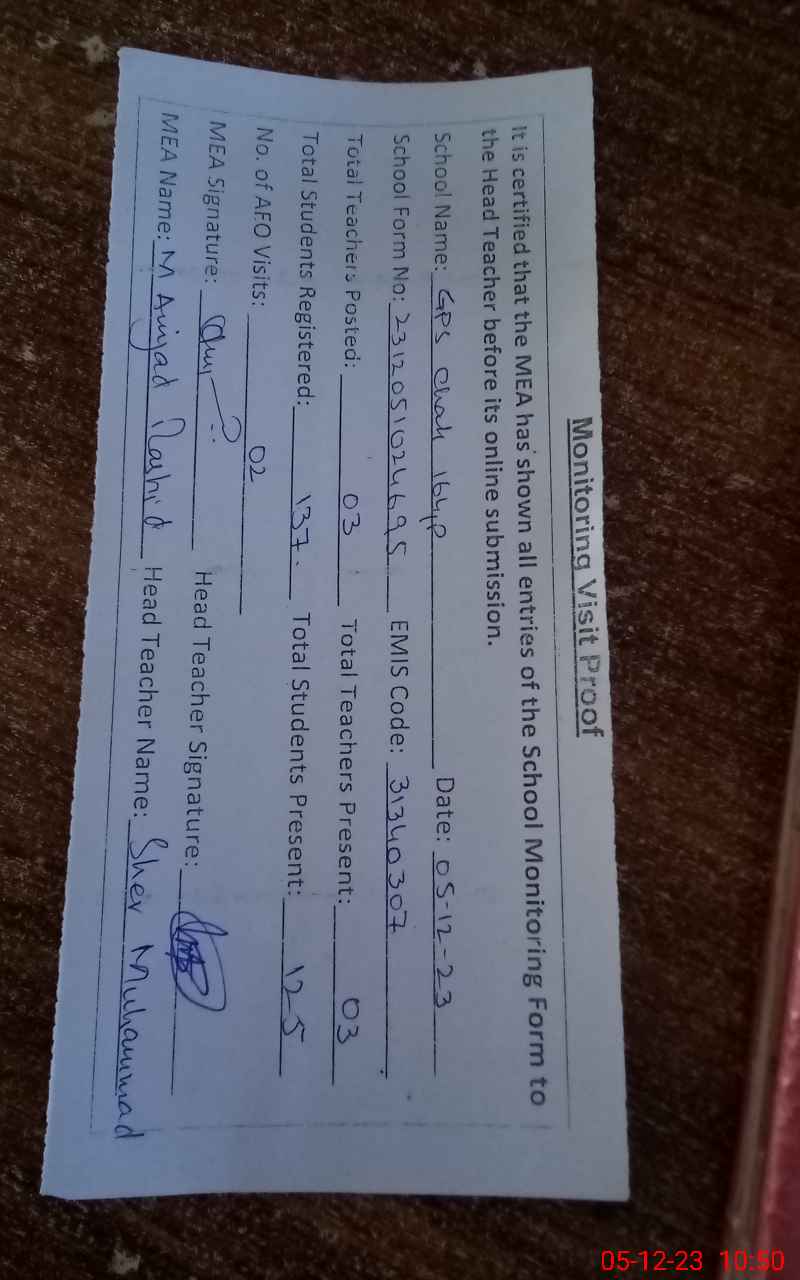 Monitoring Visit Proof
It is certified that the MEA has shown all entries of the School Monitoring Form to
the Head Teacher before its online submission.
School Name: GPS Chak 164,P Date: 05-12-23
School Form No: 2312051024695 EMIS Code: 31340307
Total Teachers Posted: 03 Total Teachers Present: 03
Total Students Registered: 137. Total Students Present: 125
No. of AEO Visits: 02
MEA Signature: Head Teacher Signature:
MEA Name: M Amjad Rashid Head Teacher Name: Sher Muhammad
05-12-23 10:50